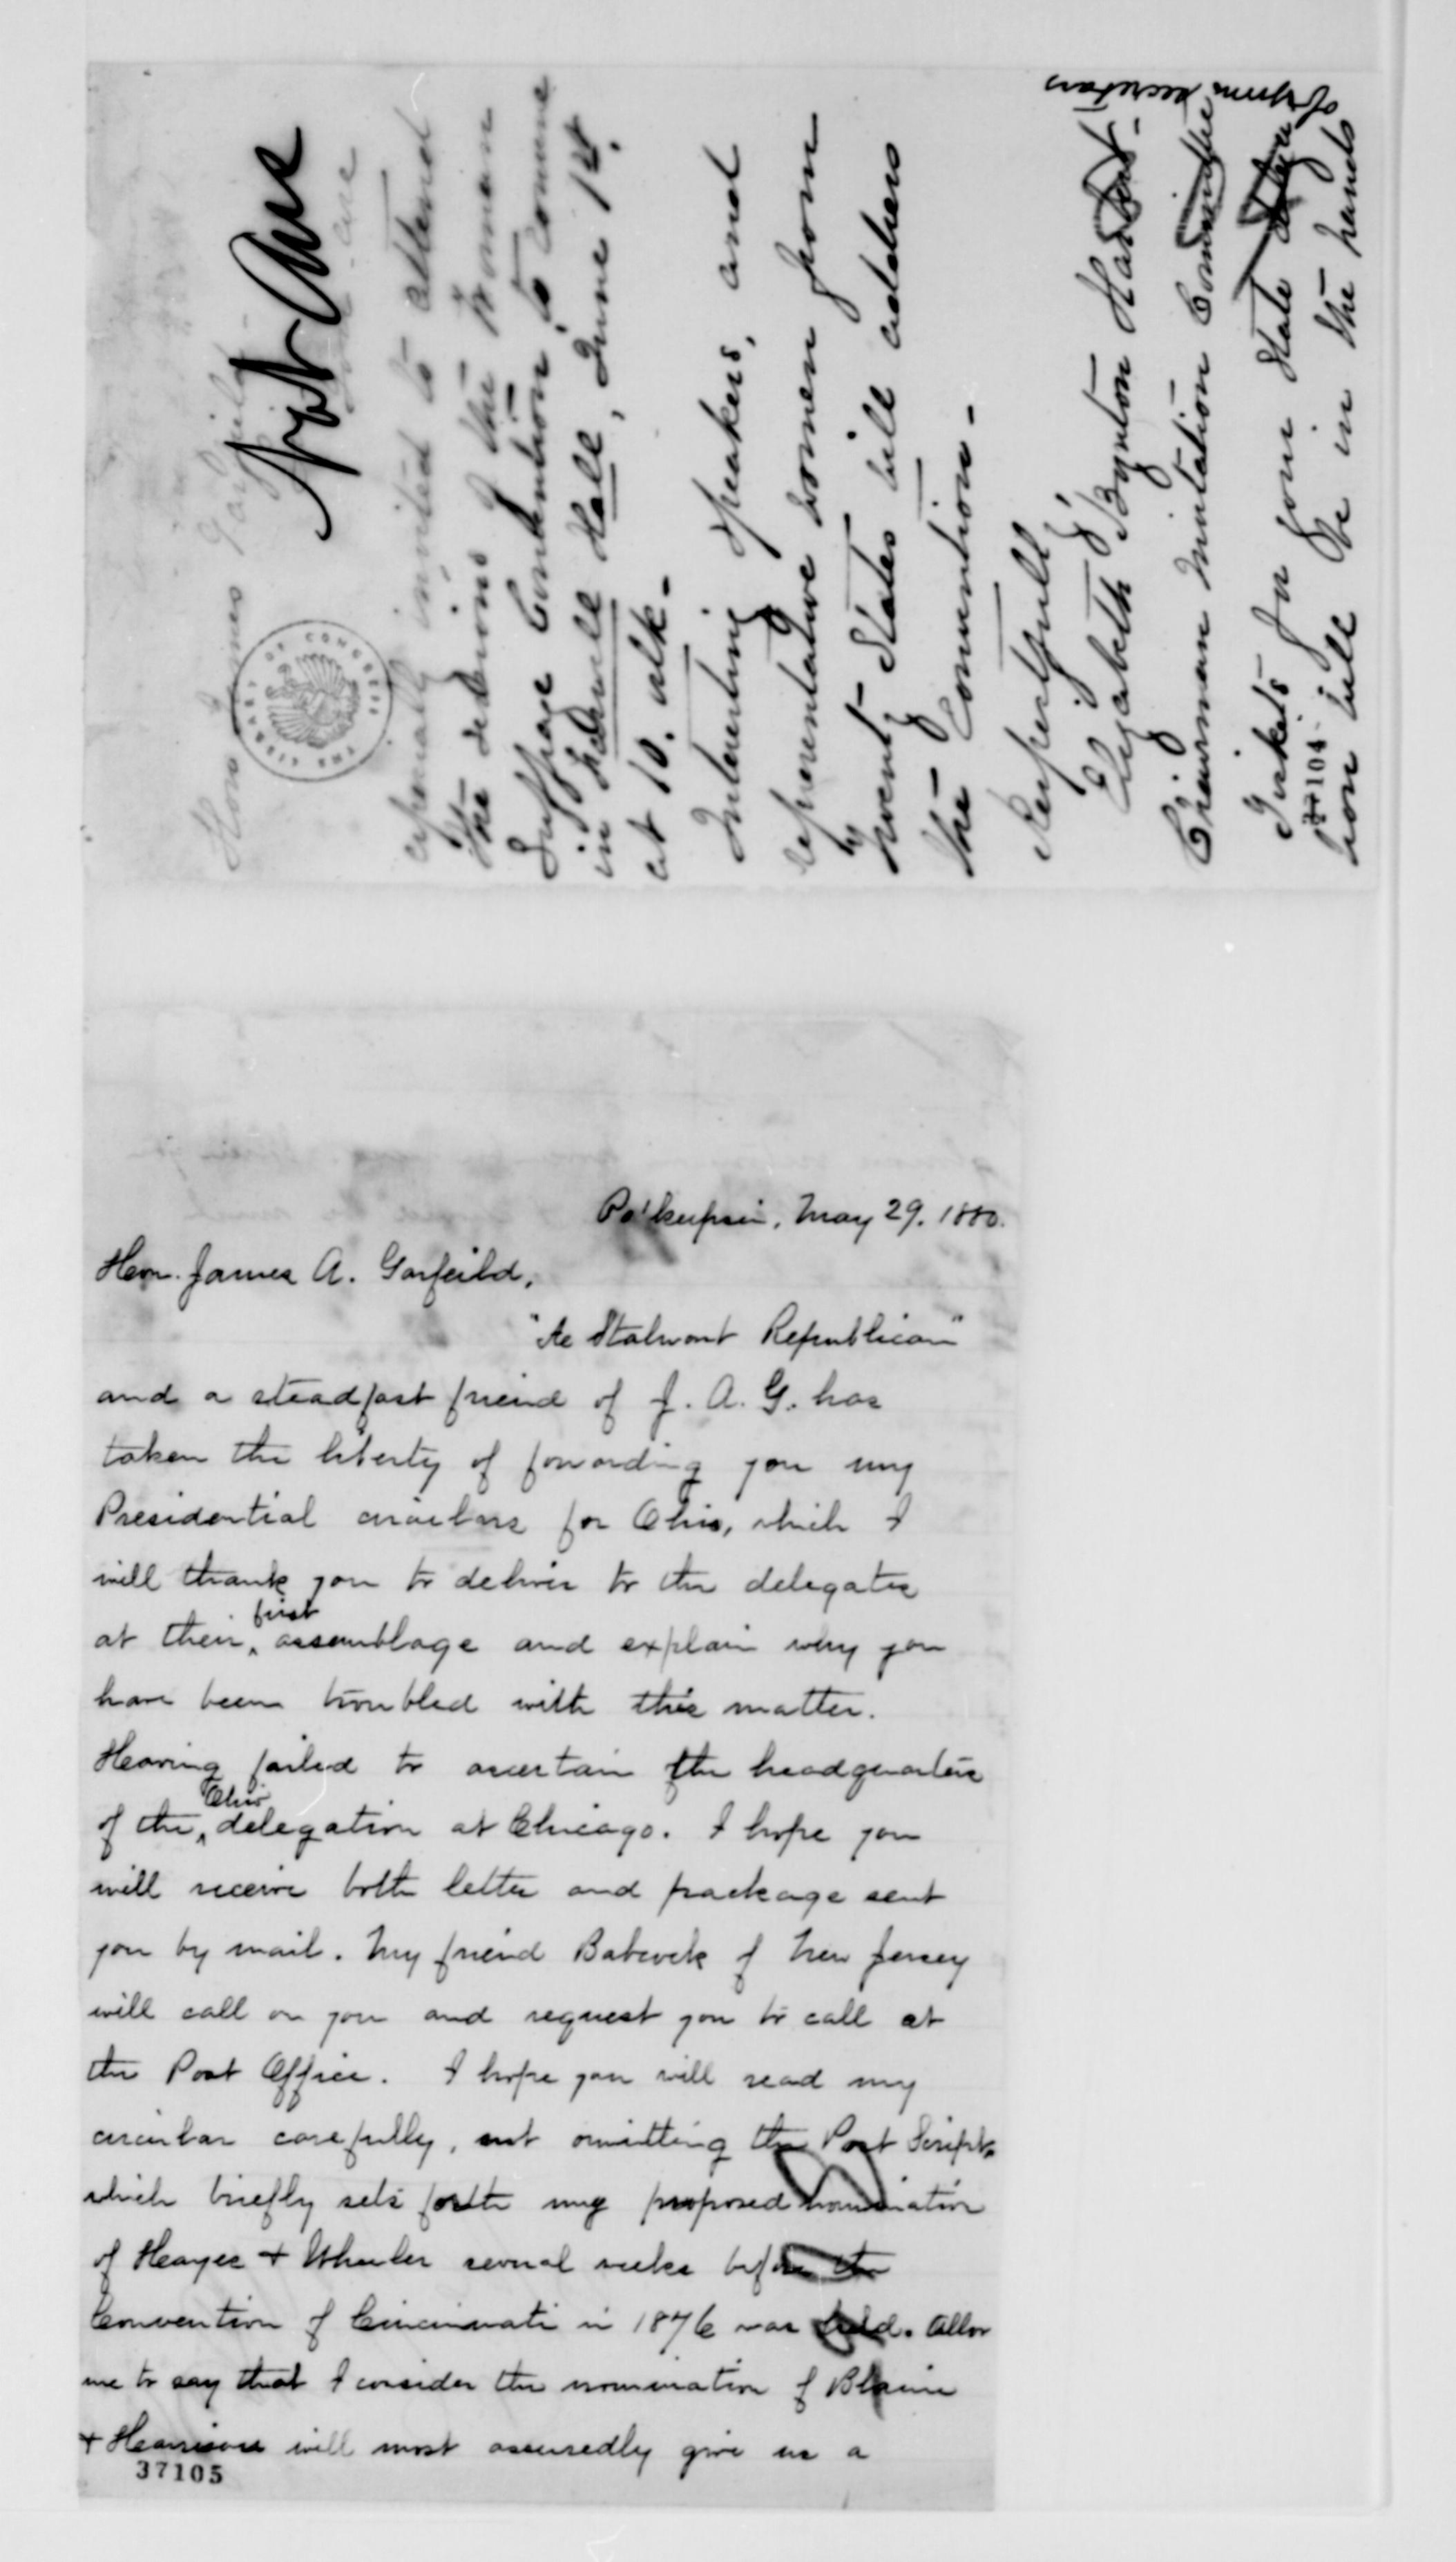 Hon James Garfield
Not Ans
especially invited to attend
the sessions of the Woman
Suffrage Convention, to convene
in Farwell Hall, June 1st.
at 10. clk-
Interesting speakers, and
representative women from
twenty States will address
the Convention-
Respectfully,
Elizabeth Boynton Harbert-
Chairman Invitation Committee
Tickets for your State delega
tion will be in the hands
of your secretary
37104
THE LIBRARY OF CONGRESS
Po'keepsie, May 29. 1880.
Hon. James A. Garfeild,
"A Stalwart Republican"
and a steadfast friend of J. A. G. has
taken the liberty of forwarding you my
Presidential circulars for Ohio, which I
will thank you to deliver to the delegates
at their ^first assemblage and explain why you
have been troubled with this matter.
Having failed to ascertain the headquarters
of the ^Ohio delegation at Chicago. I hope you
will receive both letter and package sent
you by mail. My friend Babcock of New Jersey
will call on you and request you to call at
the Post Office. I hope you will read my
circular carefully, not omitting the Post Script,
which briefly sets forth my proposed nomination
of Hayes + Wheeler several weeks before the
Convention of Cincinnati in 1876 was held. Allow
me to say that I consider the nomination of Blaine
+ Harrison will most assuredly give us a
37105